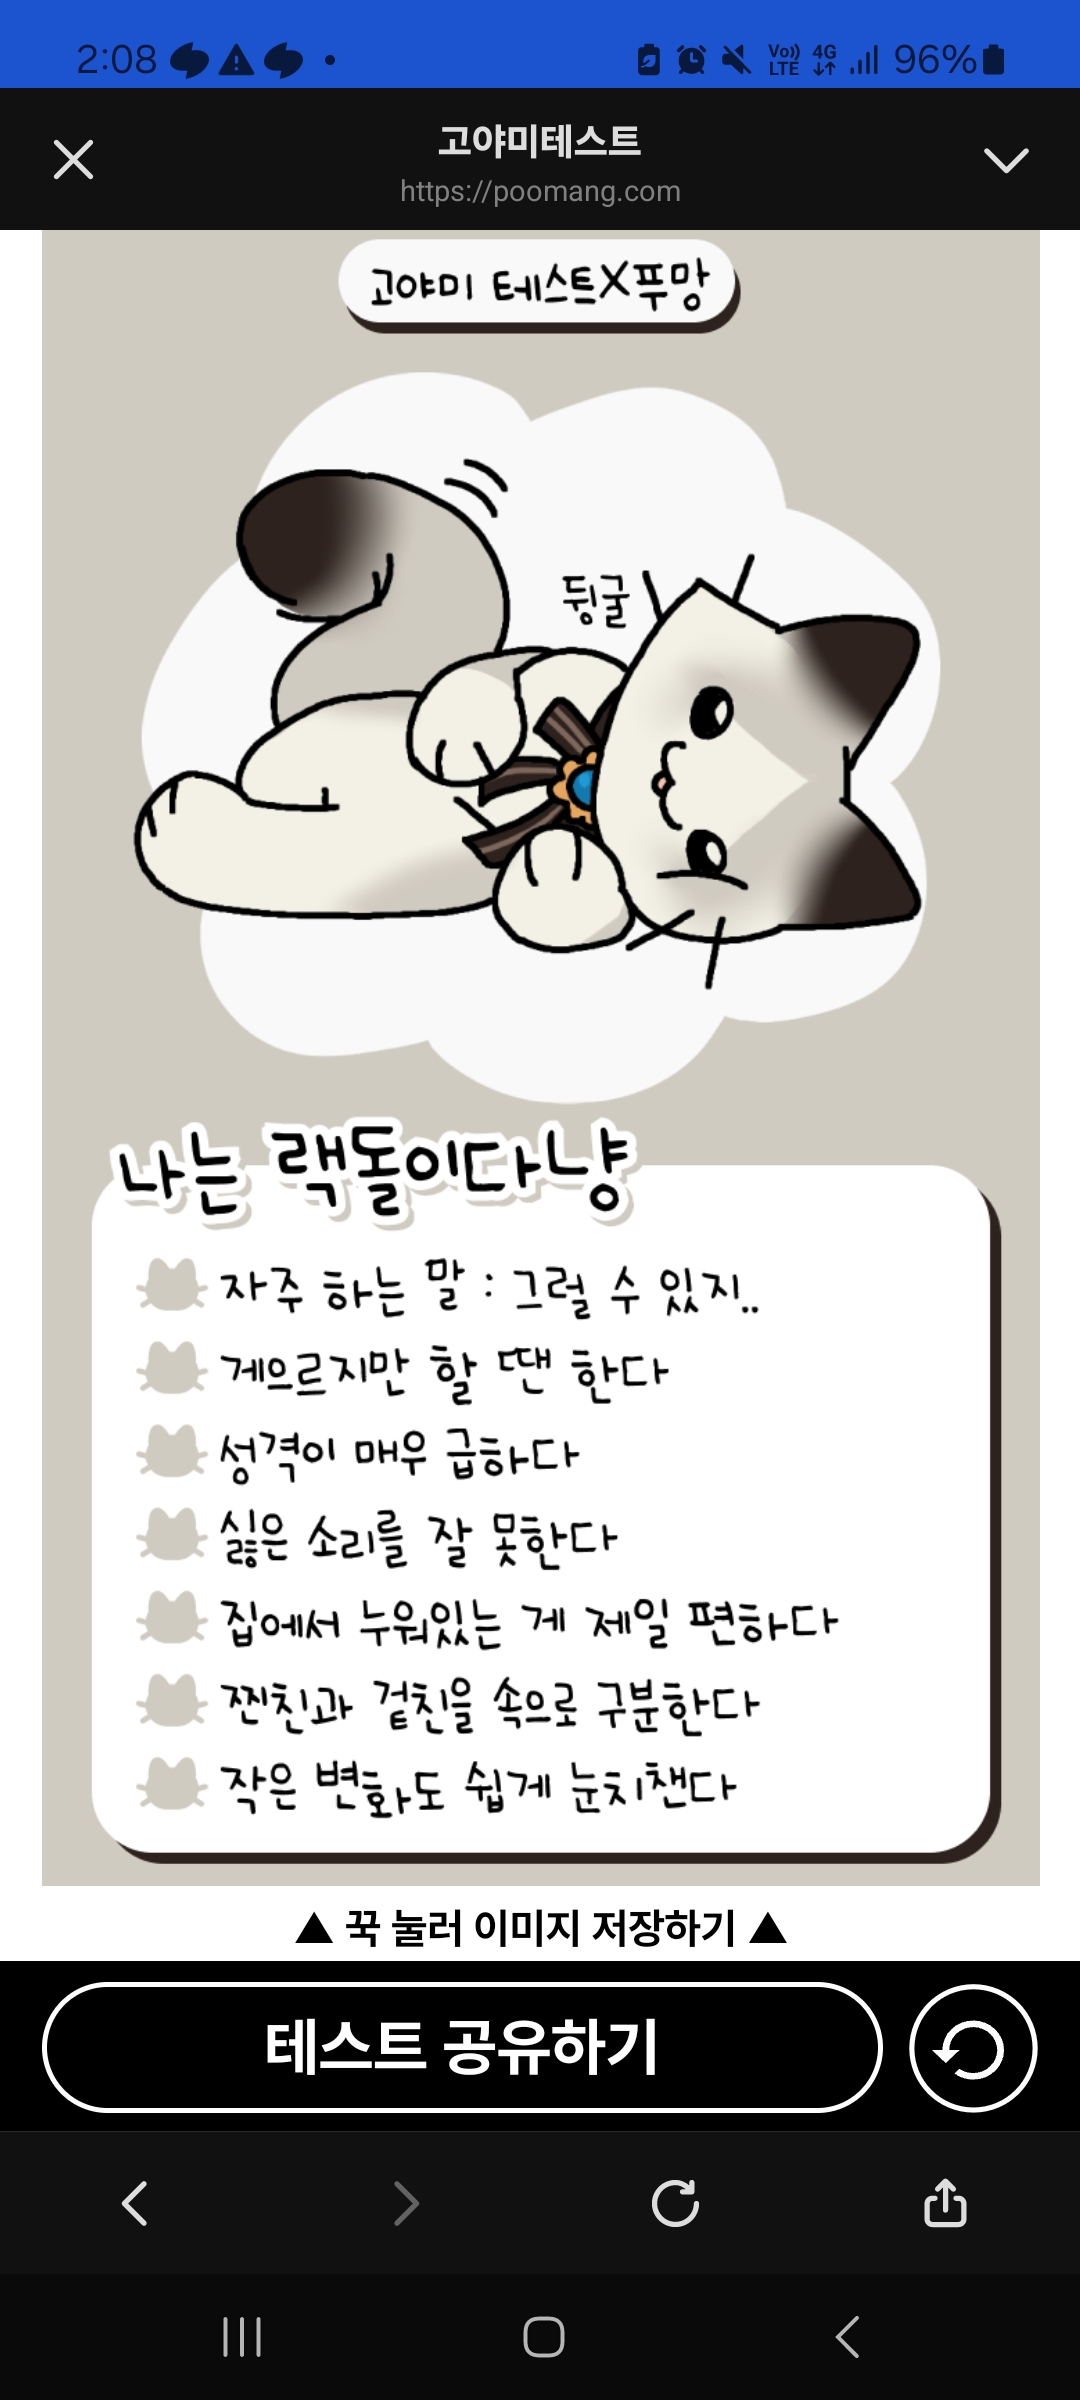 2:08
Vo)) LTE 4G 96%
고야미테스트
https://poomang.com
고야미 테스트X푸망
뒹굴
나는 랙돌이다냥
자주 하는 말 : 그럴 수 있지..
게으르지만 할 땐 한다
성격이 매우 급하다
싫은 소리를 잘 못한다
집에서 누워있는 게 제일 편하다
찐친과 겉친을 속으로 구분한다
작은 변화도 쉽게 눈치챈다
▲ 꾹 눌러 이미지 저장하기 ▲
테스트 공유하기